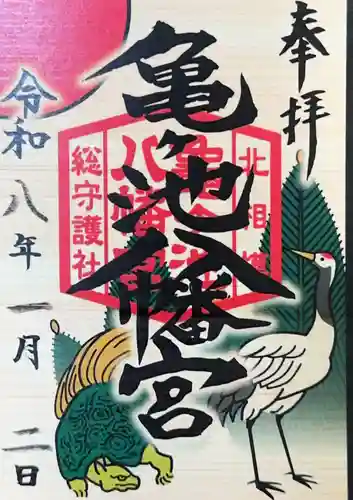 奉拝
亀ヶ池八幡宮
北相模
総守護社
令和八年一月二日